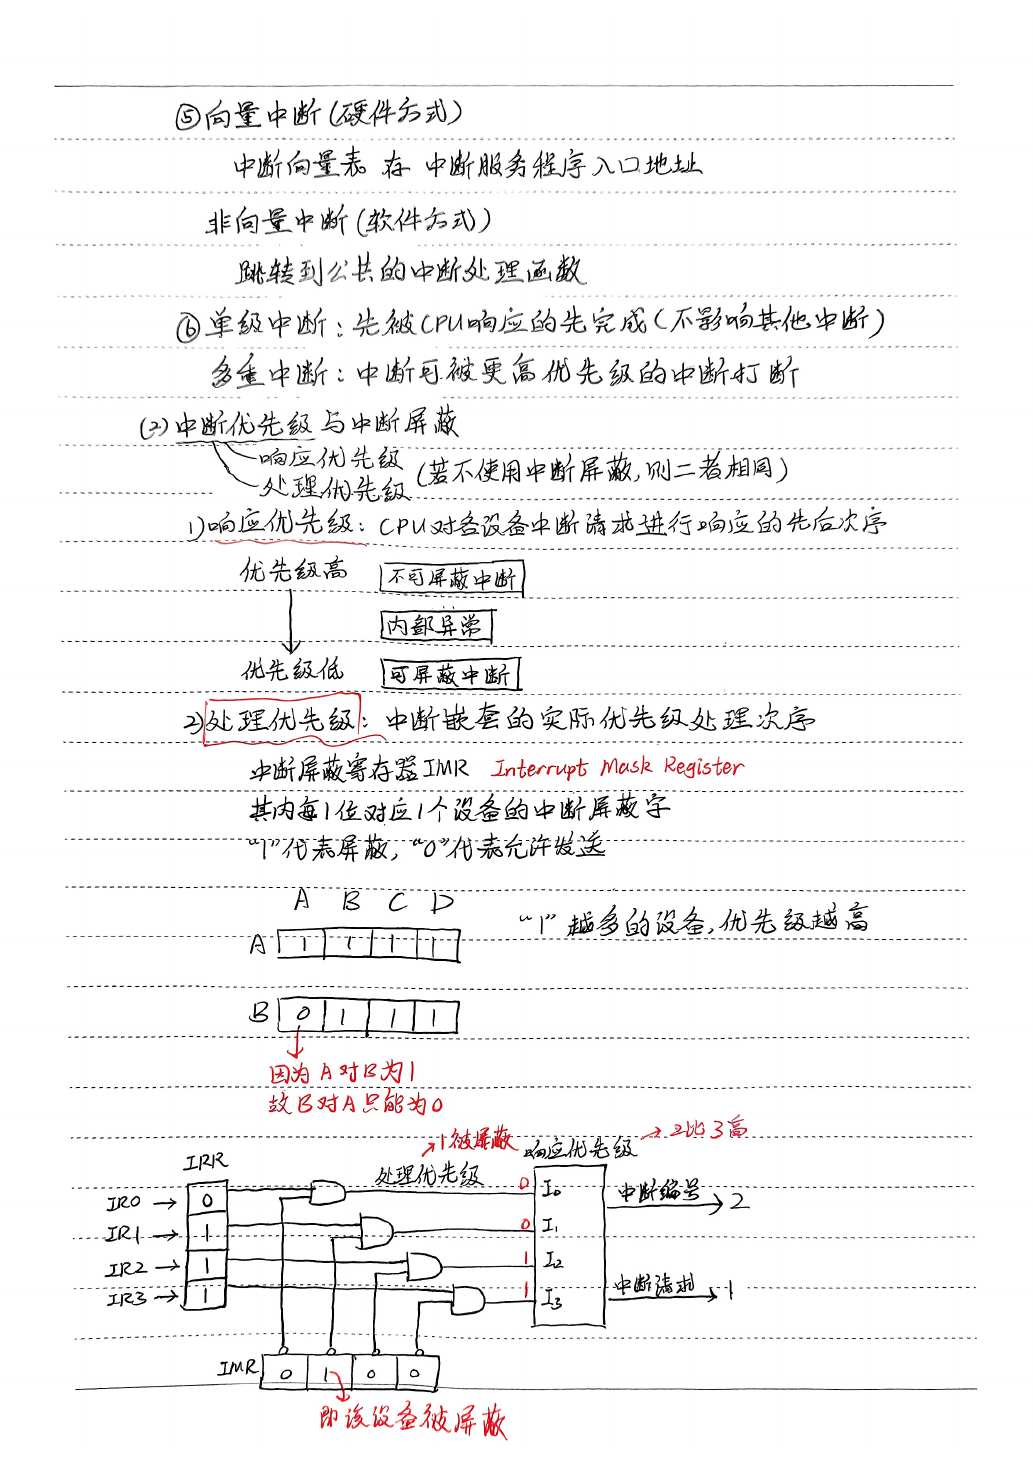 ⑤向量中断(硬件方式)
中断向量表 存 中断服务程序入口地址
非向量中断(软件方式)
跳转到公共的中断处理函数
⑥单级中断:先被CPU响应的先完成(不影响其他中断)
多重中断:中断可被更高优先级的中断打断
(2)中断优先级与中断屏蔽
响应优先级
处理优先级
(若不使用中断屏蔽,则二者相同)
1)响应优先级:CPU对各设备中断请求进行响应的先后次序
优先级高 不可屏蔽中断
内部异常
优先级低 可屏蔽中断
2)处理优先级:中断嵌套的实际优先级处理次序
中断屏蔽寄存器IMR Interrupt Mask Register
其内每1位对应1个设备的中断屏蔽字
“1”代表屏蔽,“0”代表允许发送
A B C D
“1”越多的设备,优先级越高
A 1 1 1 1
B 0 1 1 1
因为A对B为1
故B对A只能为0
→1被屏蔽 响应优先级 →2比3高
IRR 处理优先级
IR0 → 0 0 I₀ 中断编号 → 2
IR1 → 1 0 I₁
IR2 → 1 1 I₂
IR3 → 1 1 I₃ 中断请求 → 1
IMR 0 1 0 0
即该设备被屏蔽